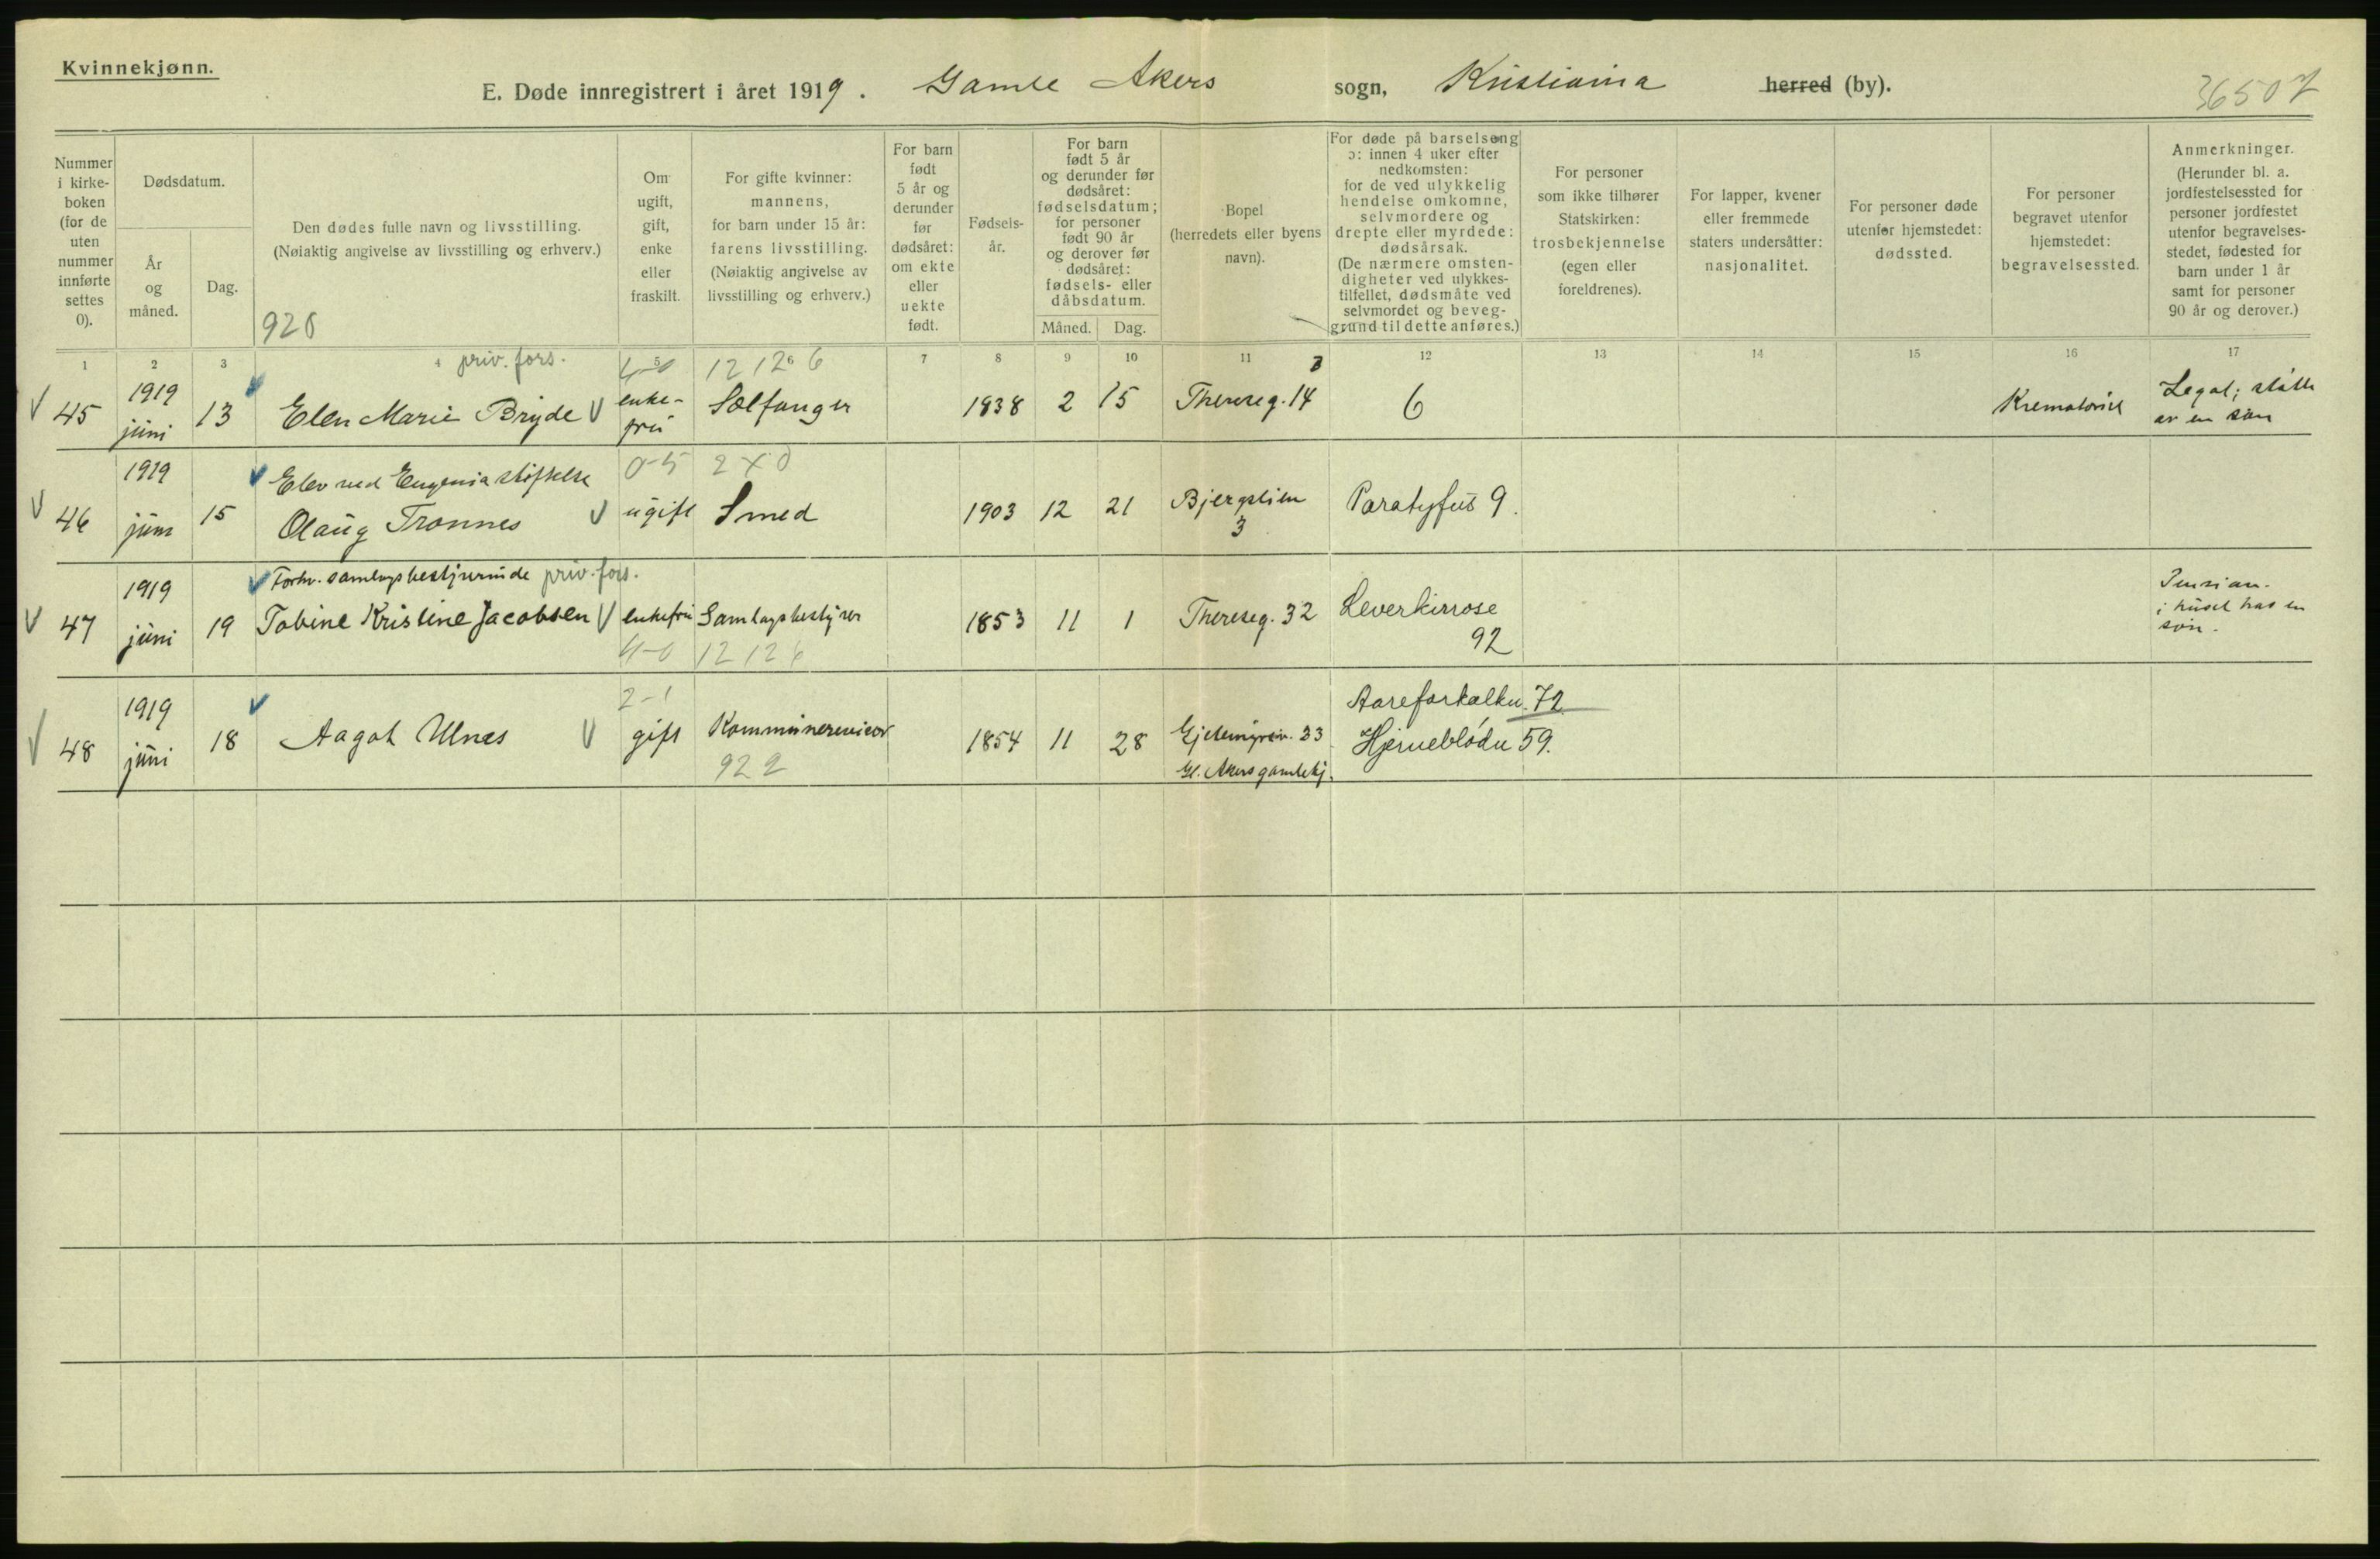 Kvinnekjønn.
E. Døde innregistrert i året 1919. Gamle Akers sogn, Kristiania herred (by).
36507
Nummer i kirkeboken (for de uten nummer innførte settes 0).
Dødsdatum.
År og måned.
Dag.
Den dødes fulle navn og livsstilling.
(Nøiaktig angivelse av livsstilling og erhverv.)
920
Om ugift, gift, enke eller fraskilt.
For gifte kvinner: mannens, for barn under 15 år: farens livsstilling.
(Nøiaktig angivelse av livsstilling og erhverv.)
For barn født 5 år og derunder før dødsåret: om ekte eller uekte født.
Fødselsår.
For barn født 5 år og derunder før dødsåret: fødselsdatum; for personer født 90 år og derover før dødsåret: fødsels- eller dåbsdatum.
Måned. Dag.
Bopel (herredets eller byens navn).
For døde på barselseng ɔ: innen 4 uker efter nedkomsten: for de ved ulykkelig hendelse omkomne, selvmordere og drepte eller myrdede: dødsårsak.
(De nærmere omstendigheter ved ulykkestilfellet, dødsmåte ved selvmordet og beveggrund til dette anføres.)
For personer som ikke tilhører Statskirken: trosbekjennelse (egen eller foreldrenes).
For lapper, kvener eller fremmede staters undersåtter: nasjonalitet.
For personer døde utenfor hjemstedet: dødssted.
For personer begravet utenfor hjemstedet: begravelsessted.
Anmerkninger.
(Herunder bl. a. jordfestelsessted for personer jordfestet utenfor begravelsesstedet, fødested for barn under 1 år samt for personer 90 år og derover.)
1 2 3 4 5 6 7 8 9 10 11 12 13 14 15 16 17
priv. fors. 4-0 12 12 6
45 1919 juni 13 Elen Marie Bryde enkefru Sælfanger 1838 2 15 Thereseg. 14 6 Krematoriet Legat; støtte av en søn
0-5 2 X 0
46 1919 juni 15 Elev ved Eugenia stiftelse Olaug Tronnes ugift Smed 1903 12 21 Bjergstien 3 Paratyfus 9.
Forhv. samlagsbestyrerinde priv. fors.
47 1919 juni 19 Tobine Kristine Jacobsen enkefru Samlagsbestyrer 1853 11 1 Thereseg. 32 Levercirrose 92 Pension. i huset hos en søn.
4-0 12 12 6
2-1
48 1919 juni 18 Aagot Ulnes gift Kommunerevisor 1854 11 28 33 Gl. Akers gamlehj. Aareforkalkn. 72. Hjerneblødn 59.
922